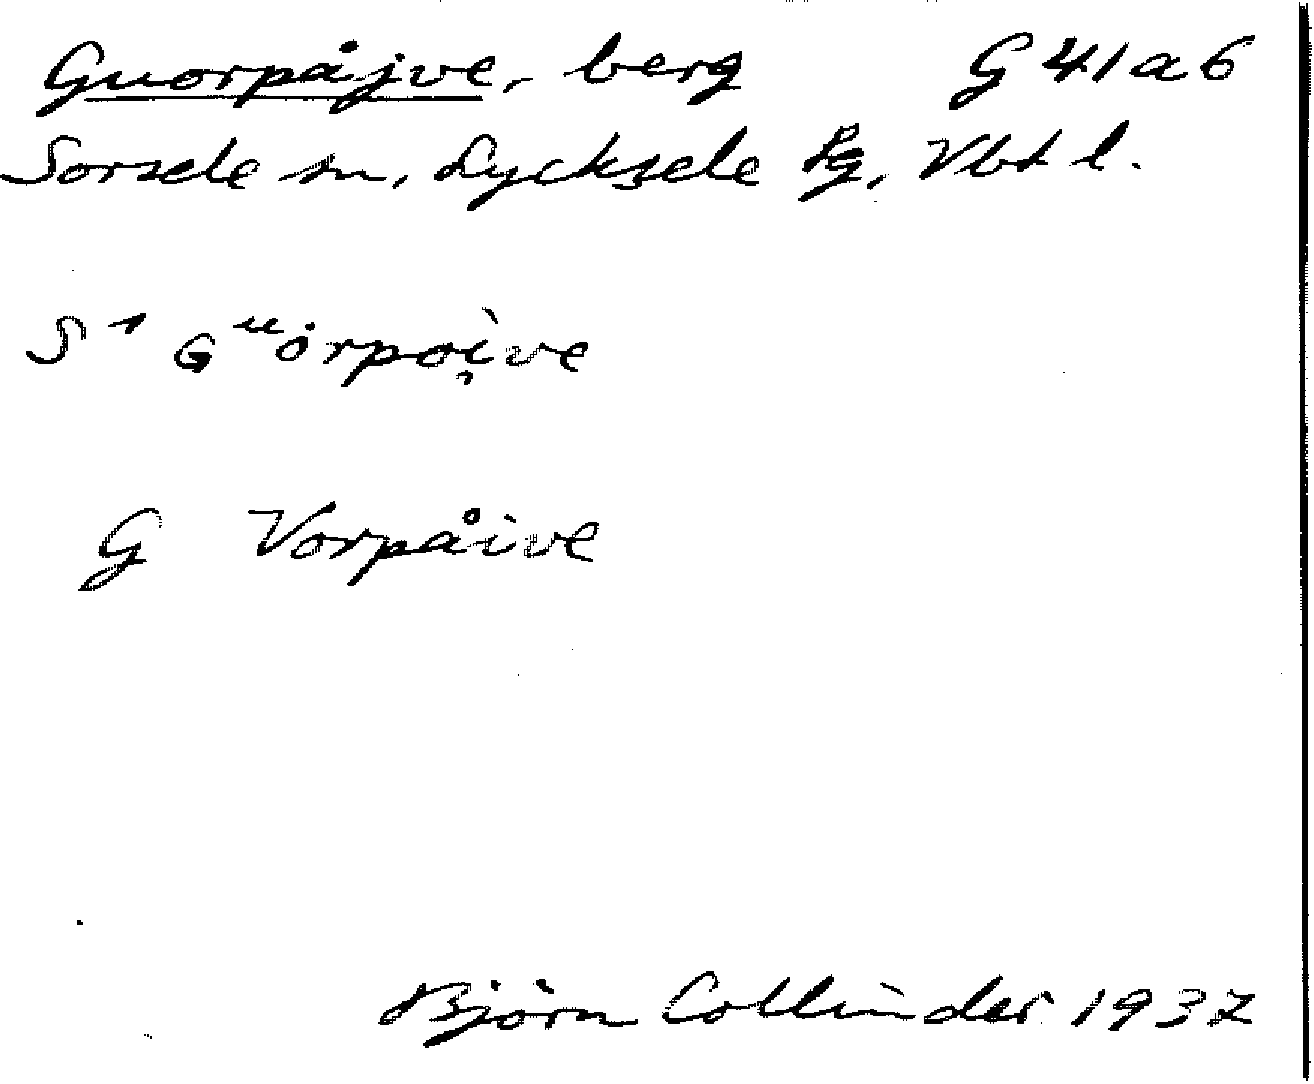 Guorpåjve, berg G 41 a 6
Sorsele sn, Lycksele lg, Vbt l.
S¹ Gᵘȯrpoi̮ve
G Vorpåive
Björn Collinder 1937